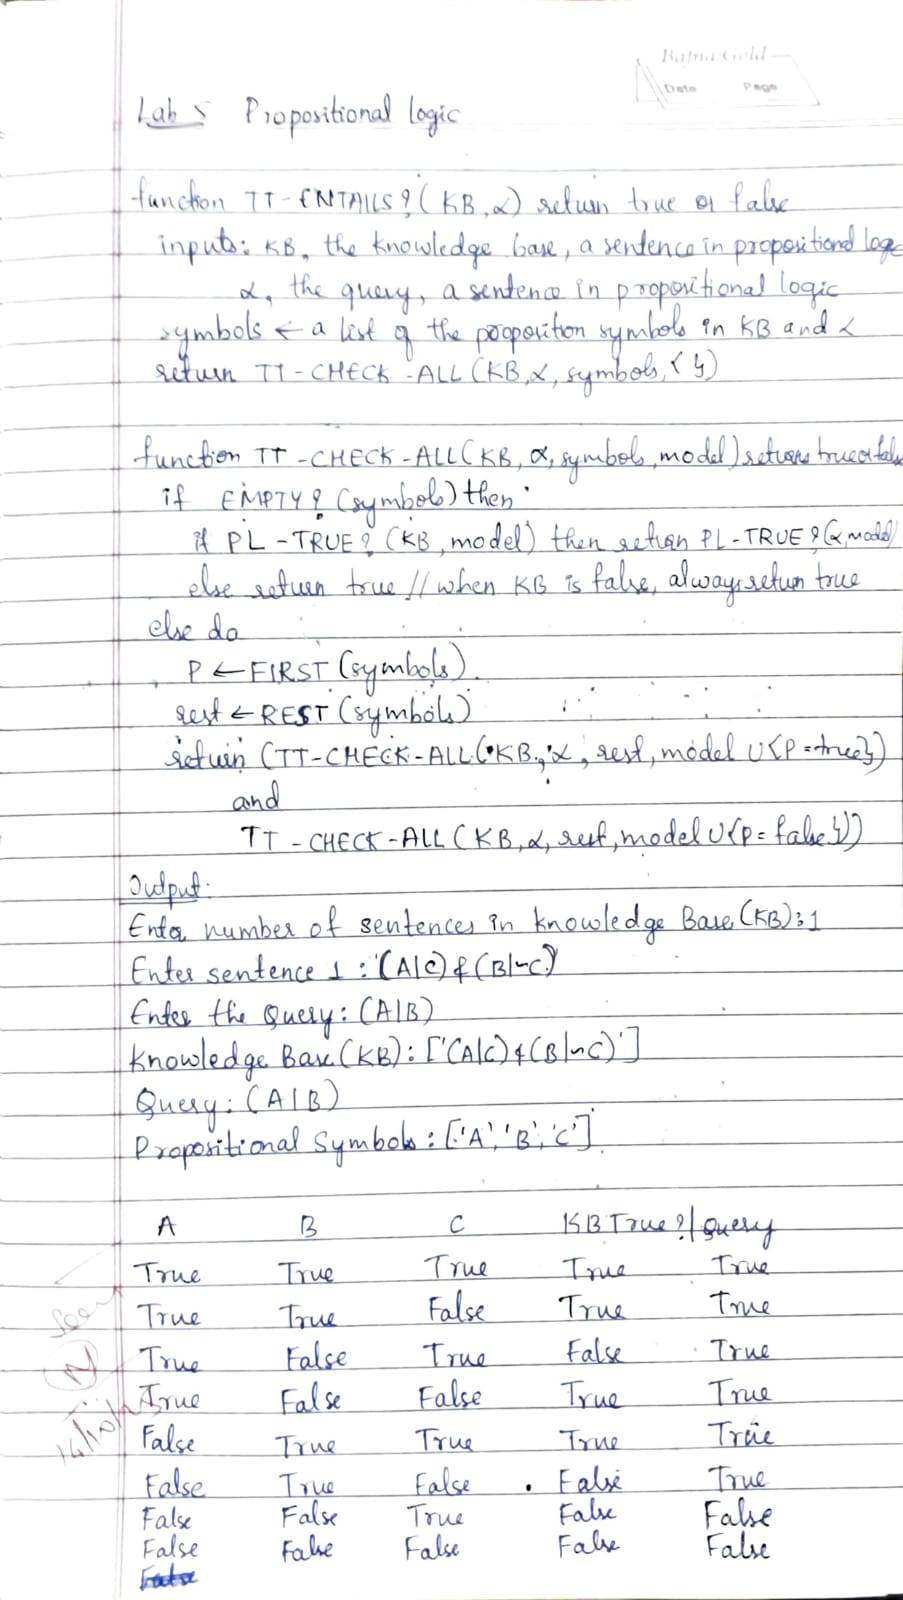 Bafna Gold
Date Page
Lab 5 Propositional logic
function TT-ENTAILS?(KB, α) return true or false
inputs: KB, the knowledge base, a sentence in propositional logic
α, the query, a sentence in propositional logic
symbols ← a list of the proposition symbols in KB and α
return TT-CHECK-ALL(KB, α, symbols, { })
function TT-CHECK-ALL(KB, α, symbols, model) returns true or false
if EMPTY? (symbols) then
if PL-TRUE? (KB, model) then return PL-TRUE? (α, model)
else return true // when KB is false, always return true
else do
P ← FIRST (symbols)
rest ← REST (symbols)
return (TT-CHECK-ALL(KB, α, rest, model ∪ {P = true})
and
TT-CHECK-ALL (KB, α, rest, model ∪ {P = false }))
Output:
Enter number of sentences in knowledge Base (KB): 1
Enter sentence 1 : (A|C) & (B|~C)
Enter the Query: (A|B)
Knowledge Base (KB): ['(A|C) & (B|~C)']
Query: (A|B)
Propositional Symbols: ['A', 'B', 'C']
A B C KB True? | Query
True True True True True
True True False True True
True False True False True
True False False True True
False True True True True
False True False False True
False False True False False
False False False False False